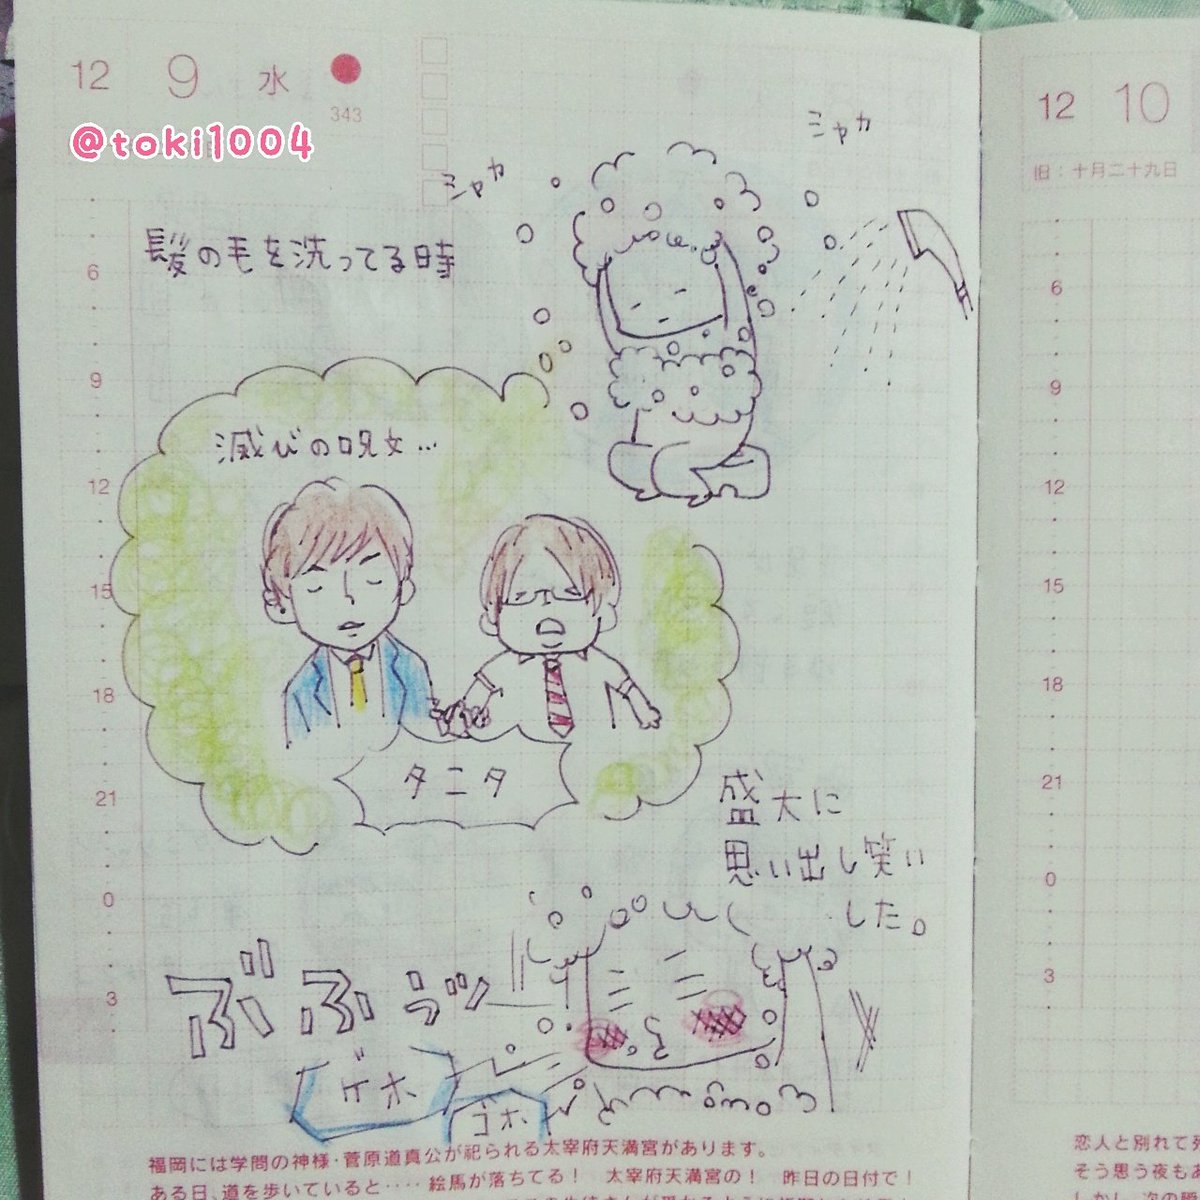 12 9 水
343
@toki1004
シャカ
シャカ
髪の毛を洗ってる時
6
9
滅びの呪文…
12
15
18
タニタ
21
盛大に
思い出し笑い
した。
0
3
ぶふぅッ
ゲホ
ゴホ
福岡には学問の神様・菅原道真公が祀られる太宰府天満宮があります。
ある日、道を歩いていると‥‥絵馬が落ちてる！　太宰府天満宮の！　昨日の日付で！
12 10
旧：十月二十九日
6
9
12
15
18
21
0
3
恋人と別れて
そう思う夜も